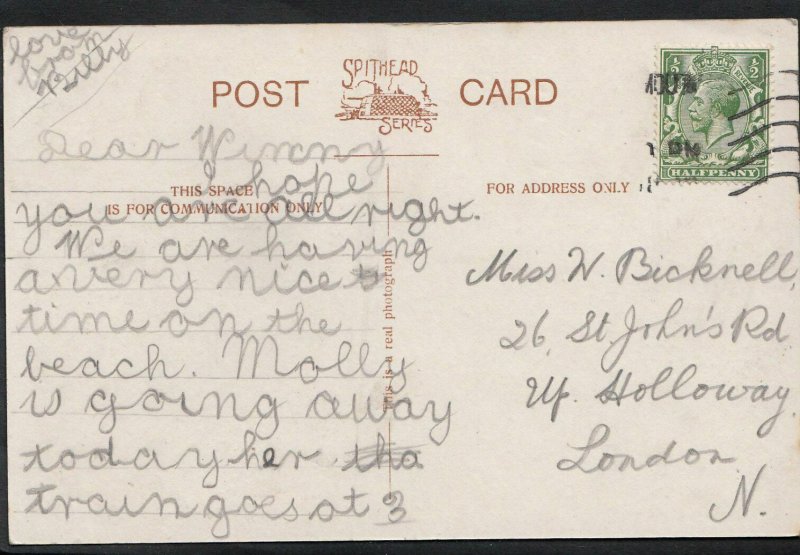 love
from
Billy
POST CARD
SPITHEAD
SERIES
½ ½
HALFPENNY
1 PM
THIS SPACE
IS FOR COMMUNICATION ONLY
FOR ADDRESS ONLY
This is a real photograph
Dear Winny
I hope
you are all right.
We are having
a very nice
time on the
beach. Molly
is going away
today her tha
train goes at 3
Miss W. Bicknell,
26, St John's Rd
Up. Holloway
London
N.